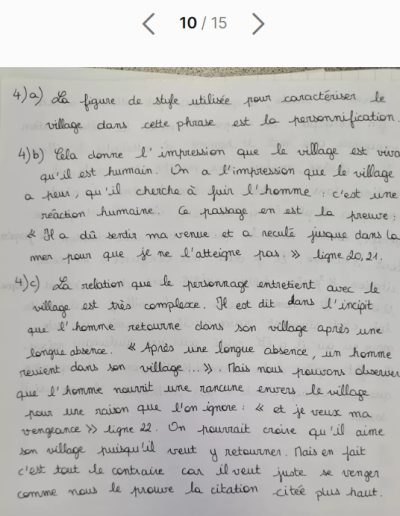 10 / 15
4)a) La figure de style utilisée pour caractériser le
village dans cette phrase est la personnification.
4)b) Cela donne l'impression que le village est viva
qu'il est humain. On a l'impression que le village
a peur, qu'il cherche à fuir l'homme : c'est une
réaction humaine. Ce passage en est la preuve :
« Il a dû sentir ma venue et a reculé jusque dans la
mer pour que je ne l'atteigne pas. » ligne 20, 21.
4)c) La relation que le personnage entretient avec le
village est très complexe. Il est dit dans l'incipit
que l'homme retourne dans son village après une
longue absence. « Après une longue absence, un homme
revient dans son village ... ». Mais nous pouvons observer
que l'homme nourrit une rancune envers le village
pour une raison que l'on ignore : « et je veux ma
vengeance » ligne 22. On pourrait croire qu'il aime
son village puisqu'il veut y retourner. Mais en fait
c'est tout le contraire car il veut juste se venger
comme nous le prouve la citation citée plus haut.